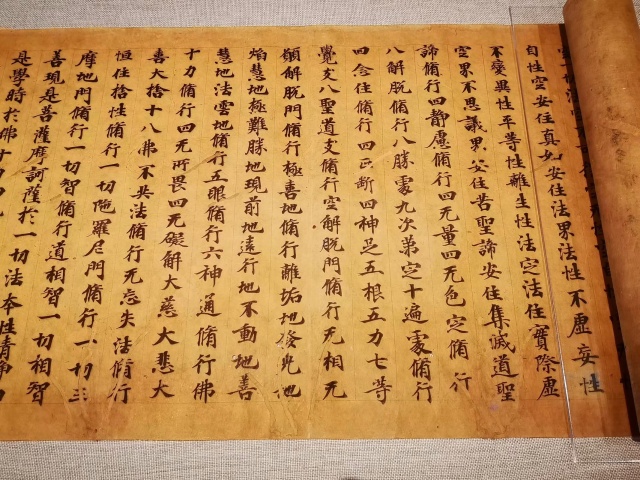 自性空安住真如安住法界法性不虛妄性
不變異性平等性離生性法定法住實際虛
空界不思議界安住苦聖諦安住集滅道聖
諦脩行四靜慮脩行四无量四无色定脩行
八解脫脩行八勝處九次第定十遍處脩行
四念住脩行四正斷四神足五根五力七等
覺支八聖道支脩行空解脫門脩行无相无
願解脫門脩行極喜地脩行離垢地發光地
焰慧地極難勝地現前地遠行地不動地善
慧地法雲地脩行五眼脩行六神通脩行佛
十力脩行四无所畏四无礙解大慈大悲大
喜大捨十八佛不共法脩行无忘失法脩行
恒住捨性脩行一切陁羅尼門脩行一切三
摩地門脩行一切智脩行道相智一切相智
善現是菩薩摩訶薩於一切法本性清淨
是學時於佛十